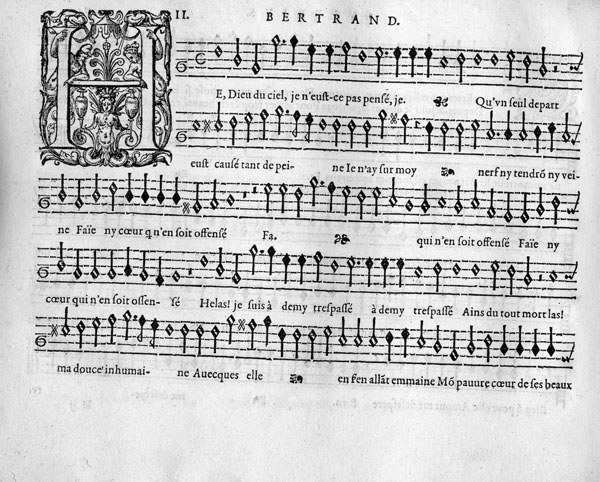 II. BERTRAND.
HE, Dieu du ciel, je n'eust-ce pas pensé, je. Qu'vn seul depart
eust causé tant de pei- ne Ie n'ay sur moy nerf ny tendrõ ny vei-
ne Faïe ny cœur q n'en soit offensé Fa. qui n'en soit offensé Faïe ny
cœur qui n'en soit offen- sé Helas! je suis à demy trespassé à demy trespassé Ains du tout mort las!
ma douce inhumai- ne Auecques elle en s'en allãt emmaine Mõ pauure cœur de ses beaux